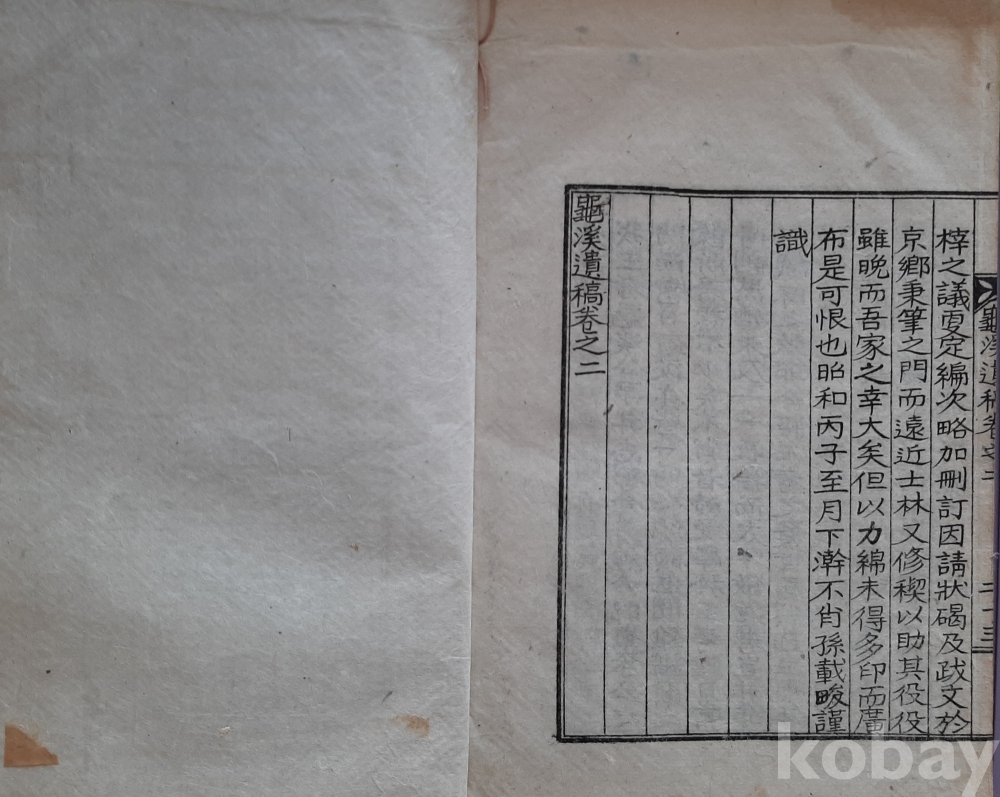 龜溪遺稿卷之二
二十三
梓之議更定編次略加刪訂因請狀碣及跋文於
京鄕秉筆之門而遠近士林又修稧以助其役役
雖晩而吾家之幸大矣但以力綿未得多印而廣
布是可恨也昭和丙子至月下澣不肖孫載畯謹
識
龜溪遺稿卷之二
kobay